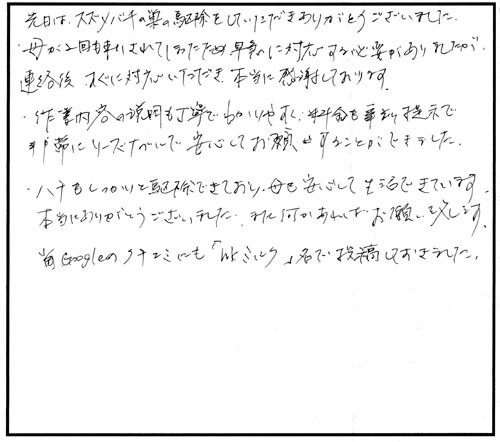 先日は、スズメバチの巣の駆除をしていただきありがとうございました。
・母が2回も刺されてしまったため早急に対応する必要がありましたが、
連絡後、すぐに対応いただき、本当に感謝しております。
・作業内容の説明も丁寧でわかりやすく、料金も事前提示で
非常にリーズナブルで安心してお願いすることができました。
・ハチもしっかりと駆除できており、母も安心して生活できています。
本当にありがとうございました。また何かあればお願い致します。
Googleのクチコミにも「hkミルク」名で投稿しておきました。